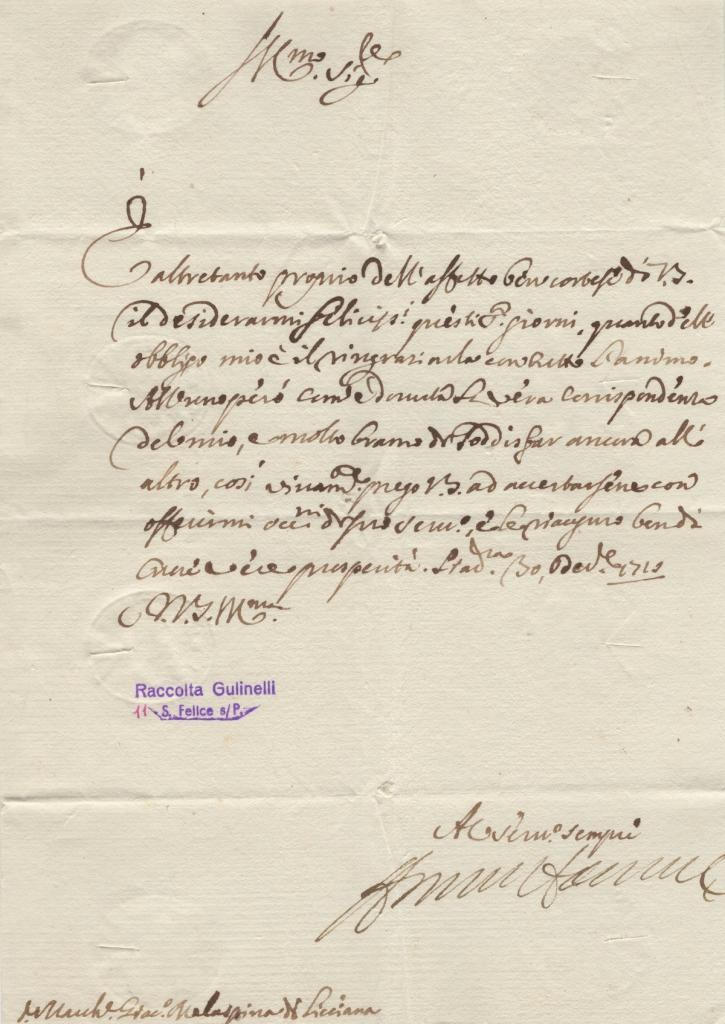 Ill.mo Sig.re
È
altretanto proprio dell'affetto ben cortese di V.S.
il desiderarmi felicis.i questi S.ti giorni, quanto dell'
obbligo mio è il ringraziarla con tutto l'animo.
All'uno però com'è dovuta la vera corrispondenza
del mio, e molto bramo di soddisfar ancora all'
altro, così vivam.te prego V.S. ad accertarsene con
offerirmi occ.ni di suo serv.o, e le riauguro ben di
cuore vere prosperità. 30, Dec.e 1710
D. V. S. Ill.ma
Raccolta Gulinelli
11 S. Felice s/P.
Al serv.o sempre
S. March.e Giac.o Malaspina di Licciana